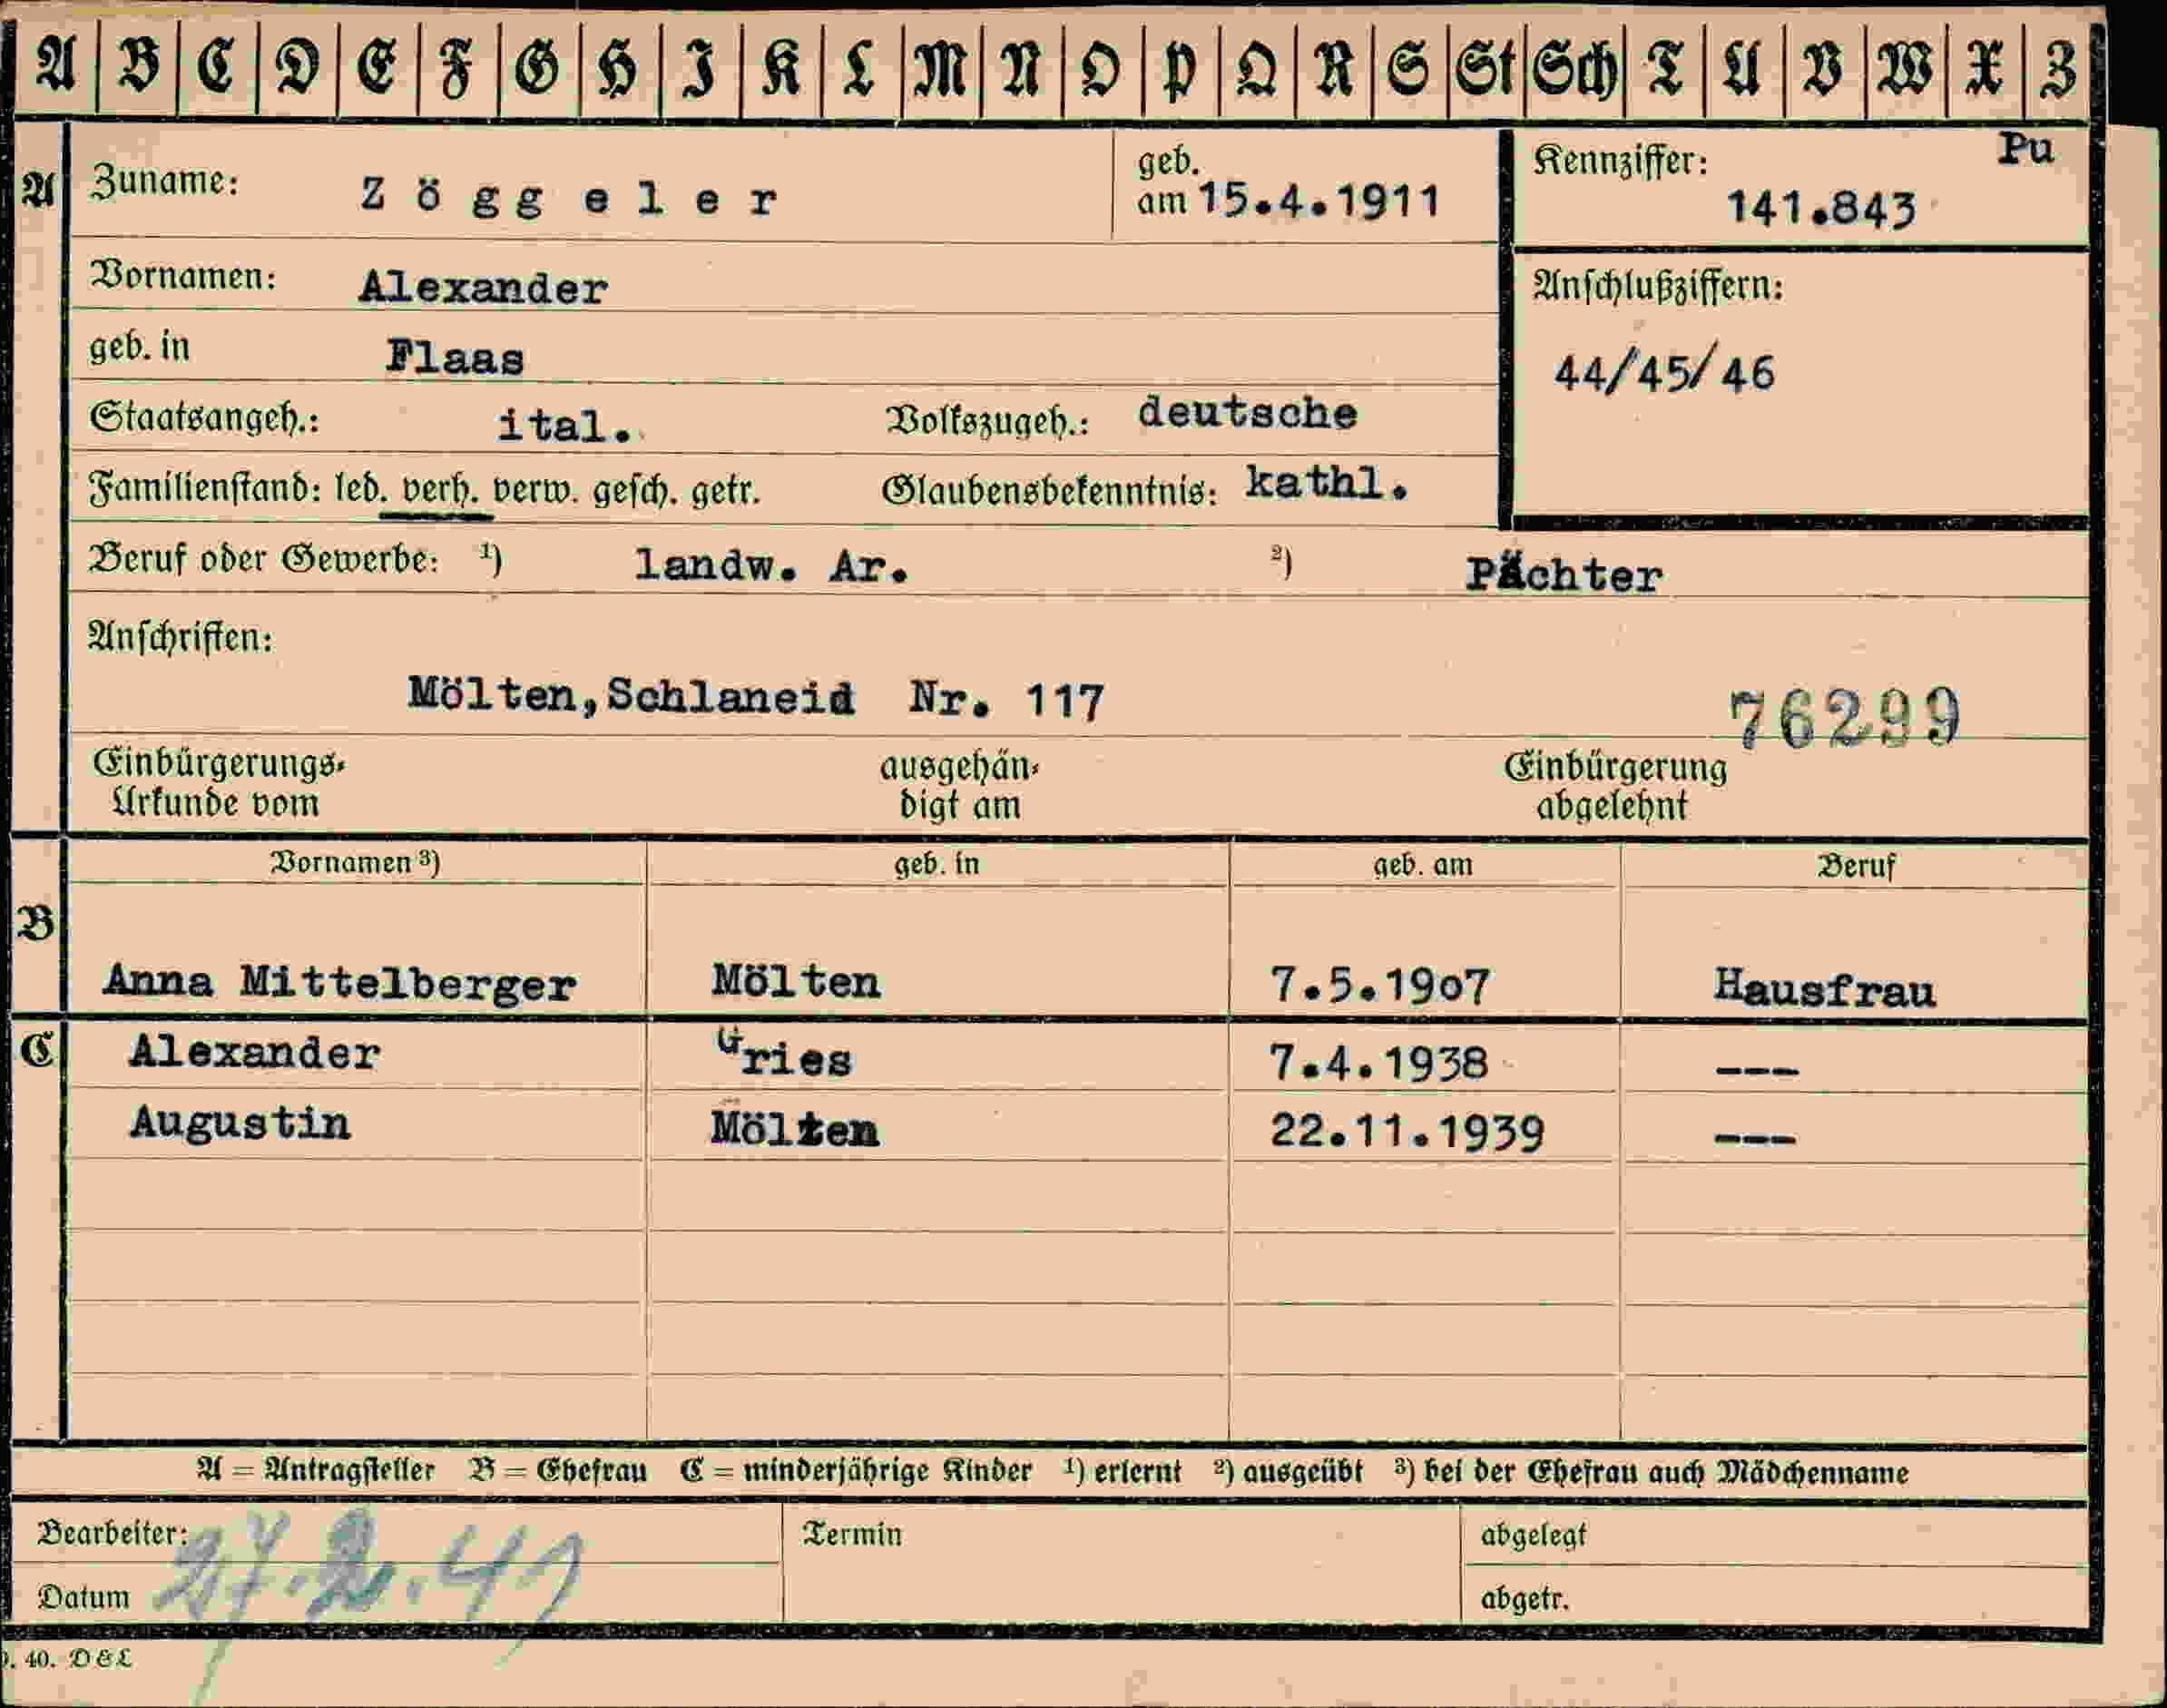 A B C D E F G H I K L M N O P Q R S St Sch T U V W X Z
A Zuname: Zöggeler geb. am 15.4.1911 Kennziffer: Pu 141.843
Vornamen: Alexander Anschlußziffern:
geb. in Flaas 44/45/46
Staatsangeh.: ital. Volkszugeh.: deutsche
Familienstand: led. verh. verw. gesch. getr. Glaubensbekenntnis: kathl.
Beruf oder Gewerbe: 1) landw. Ar. 2) Pächter
Anschriften:
Mölten, Schlaneid Nr. 117 76299
Einbürgerungs- ausgehän- Einbürgerung
Urkunde vom digt am abgelehnt
Vornamen 3) geb. in geb. am Beruf
B
Anna Mittelberger Mölten 7.5.1907 Hausfrau
C Alexander Gries 7.4.1938 ---
Augustin Mölten 22.11.1939 ---
A = Antragsteller B = Ehefrau C = minderjährige Kinder 1) erlernt 2) ausgeübt 3) bei der Ehefrau auch Mädchenname
Bearbeiter: Termin abgelegt
Datum abgetr.
40. D & L